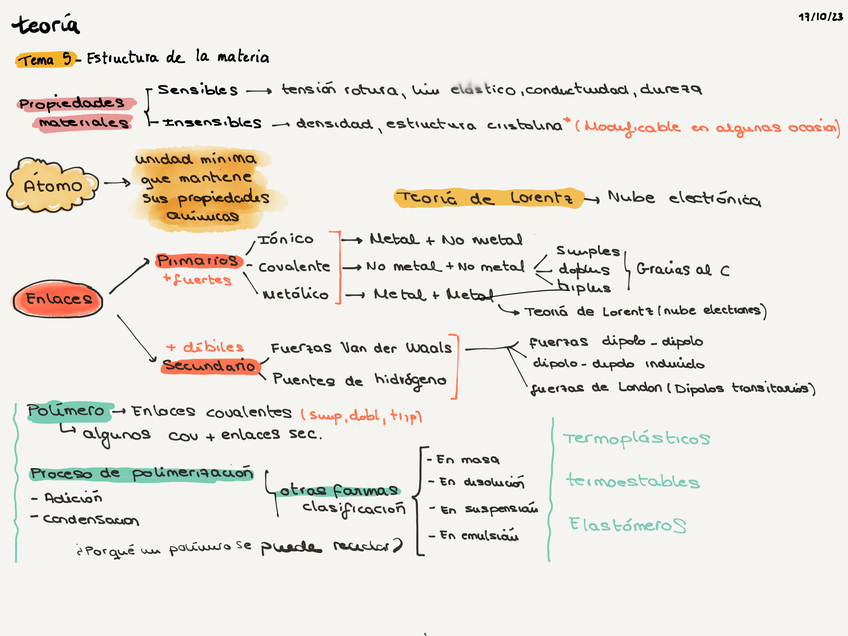 teoría
17/10/23
Tema 5 - Estructura de la materia
Propiedades materiales
Sensibles → tensión rotura, lim elástico, conductividad, dureza
Insensibles → densidad, estructura cristalina* (Modificable en algunas ocasion)
Átomo →
unidad mínima
que mantiene
sus propiedades
químicas
Teoría de Lorentz → Nube electrónica
Enlaces
Primarios
+ fuertes
Iónico → Metal + No metal
Covalente → No metal + No metal
Simples
dobles
triples
Gracias al C
Metálico → Metal + Metal
Teoría de Lorentz (nube electrones)
+ débiles
Secundario
Fuerzas Van der Waals
Puentes de hidrógeno
fuerzas dipolo - dipolo
dipolo - dipolo inducido
fuerzas de London (Dipolos transitarios)
Polímero → Enlaces covalentes (simp, dobl, trip)
algunos cov + enlaces sec.
Proceso de polimerización
- Adición
- Condensacion
otras formas
clasificación
- En masa
- En disolución
- En suspensión
- En emulsión
¿Porqué un polímero se puede reciclar?
Termoplásticos
termoestables
Elastómeros